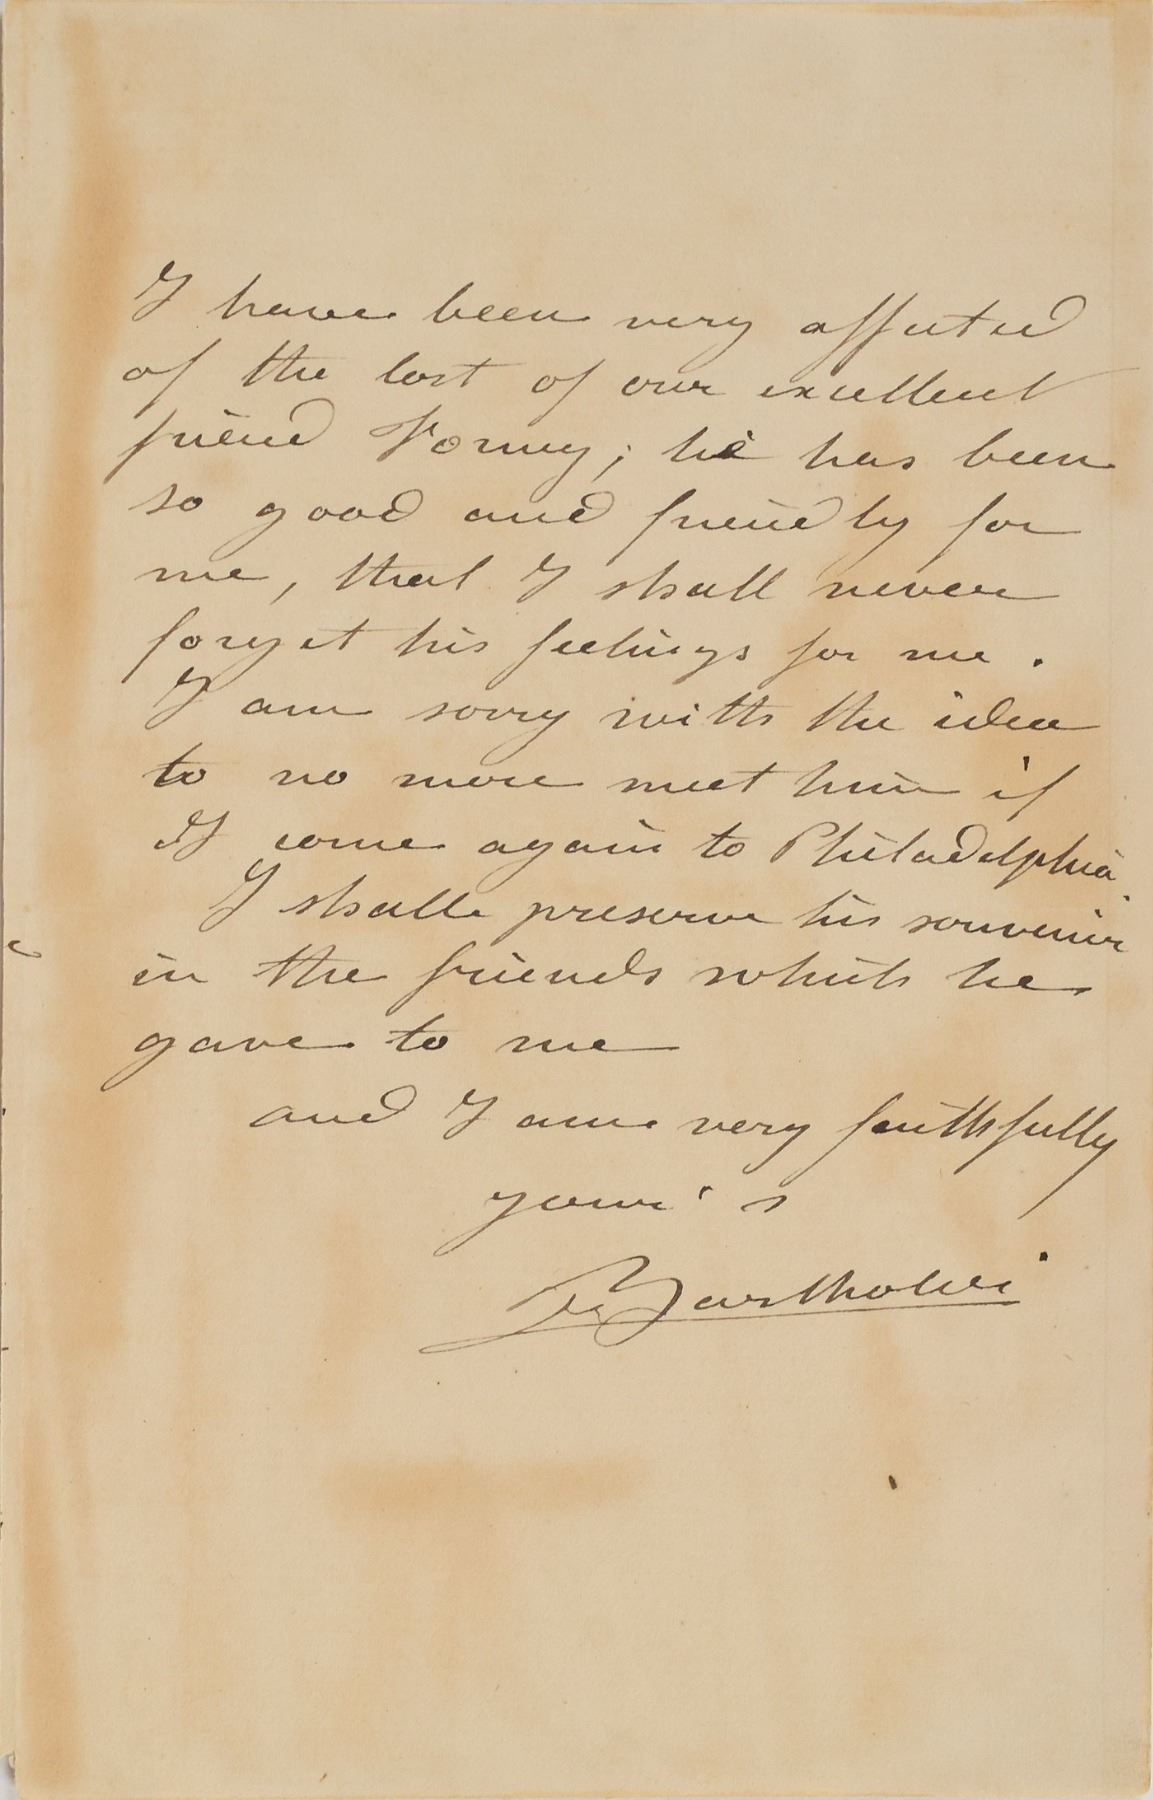 I have been very affected
of the lost of our excellent
friend Forney; he has been
so good and friendly for
me, that I shall never
forget his feelings for me.
I am sorry with the idea
to no more meet him if
I come again to Philadelphia.
I shall preserve his souvenir
in the friends which he
gave to me
and I am very faithfully
your's
Bartholdi